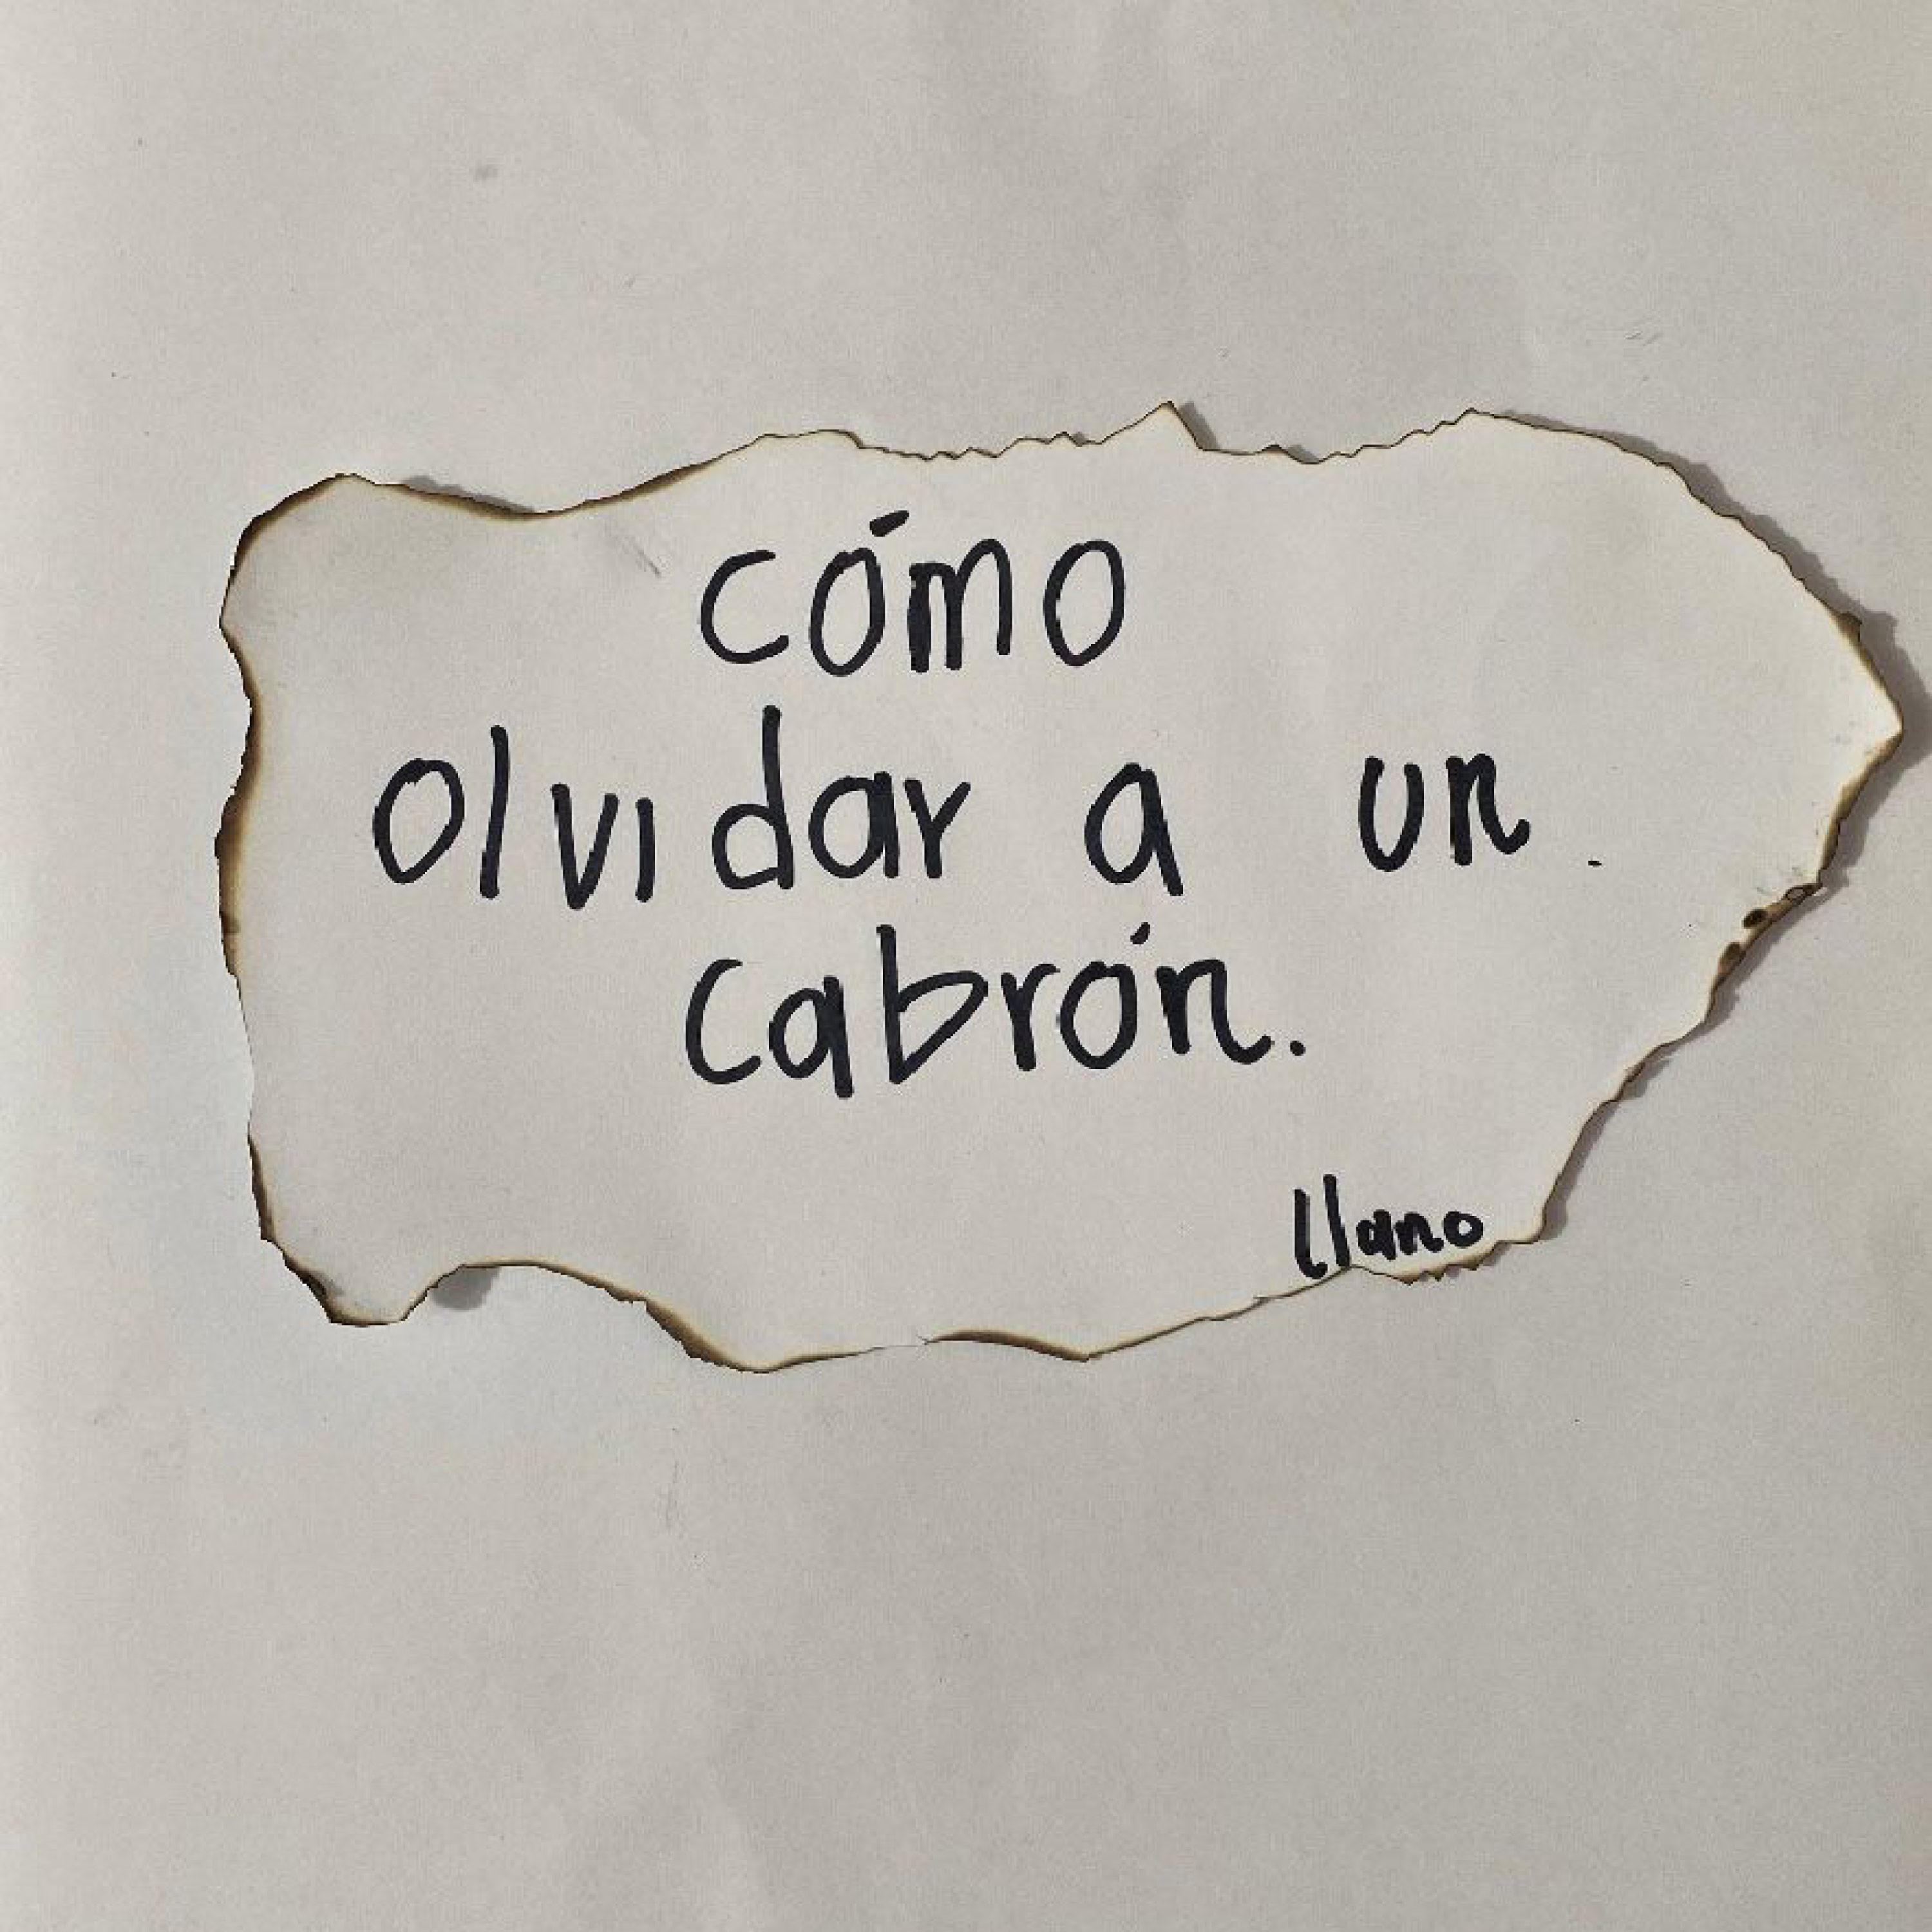 cómo
olvidar a un.
cabrón.
llano